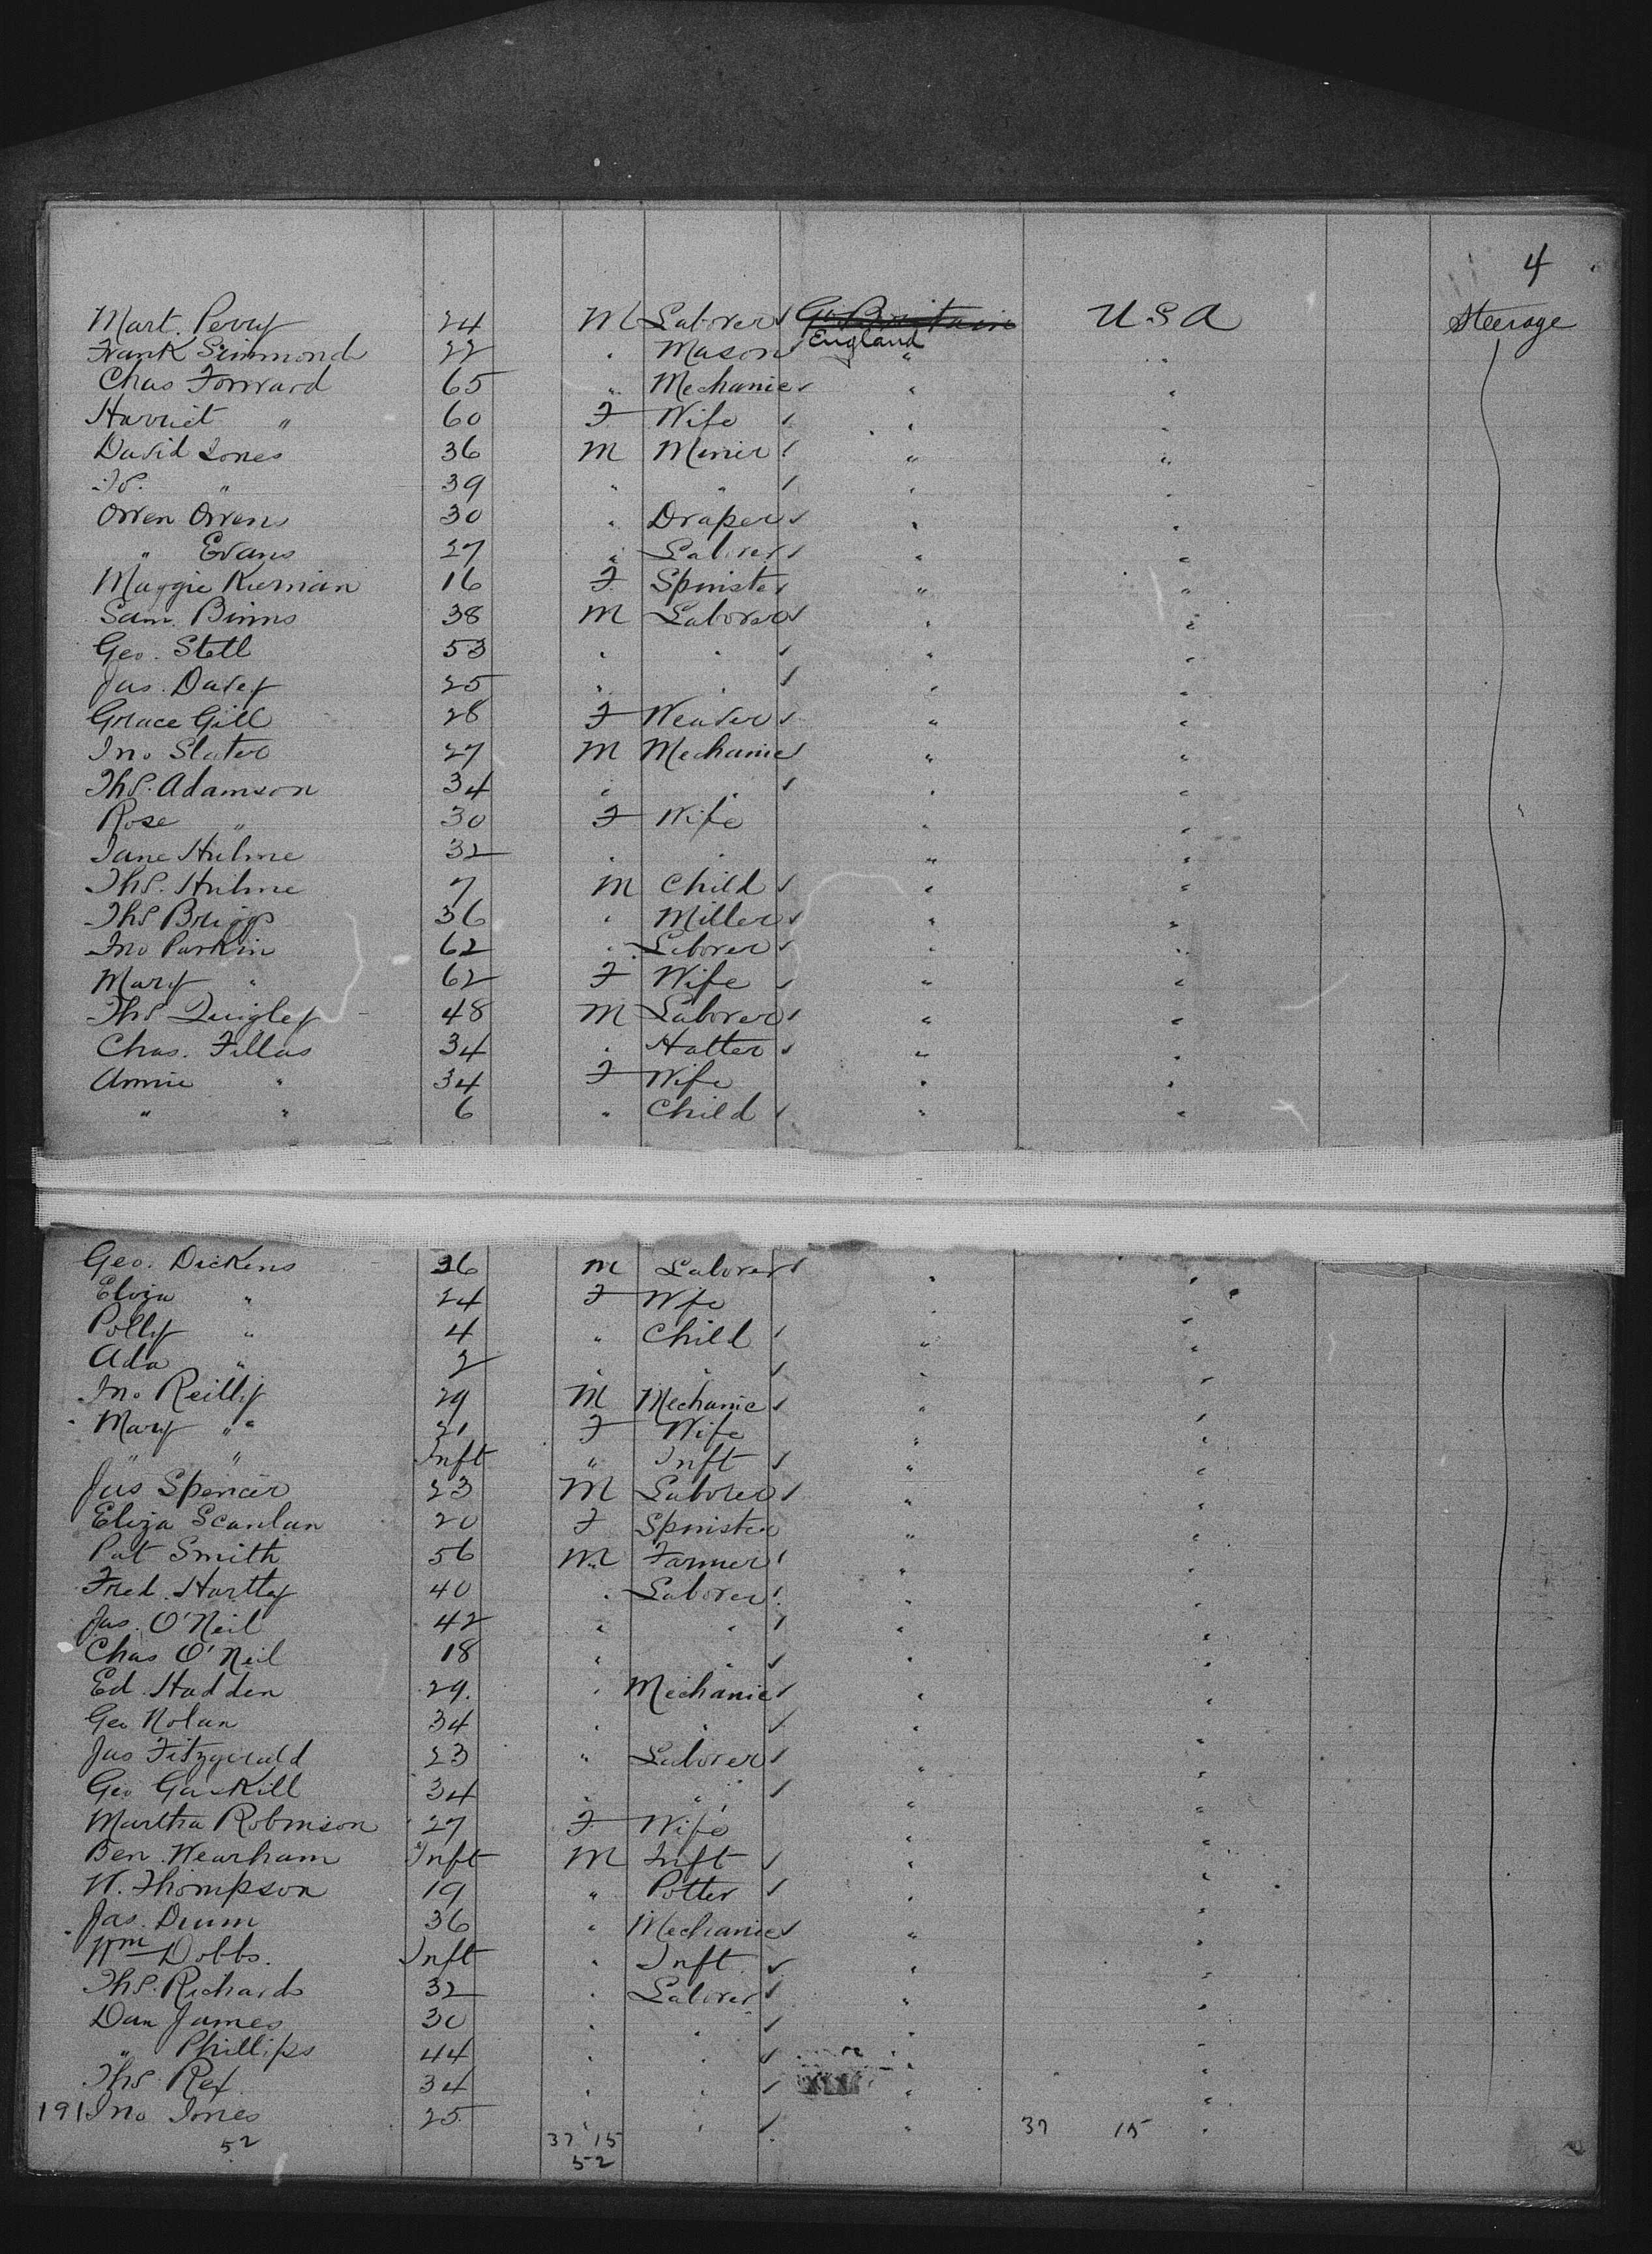 4
Mart. Perry 24 M Laborer ✓ Gt Britain U S A Steerage
Frank Simmonds 22 " Mason England " "
Chas Forward 65 " Mechanic ✓ " "
Harriet " 60 F Wife ✓ " "
David Jones 36 M Miner ✓ " "
Ths. " 39 " " ✓ " "
Owen Owens 30 " Draper ✓ " "
" Evans 27 " Laborer ✓ " "
Maggie Kiernan 16 F Spinster ✓ " "
Sam. Binns 38 M Laborer ✓ " "
Geo. Stell 53 " " ✓ " "
Jas. Davey 25 " " ✓ " "
Grace Gill 28 F Weaver ✓ " "
Jno Slater 27 M Mechanic ✓ " "
Ths. Adamson 34 " " ✓ " "
Rose " 30 F Wife " "
Jane Hulme 32 " " " "
Ths. Hulme 7 M Child ✓ " "
Ths Briggs 36 " Miller ✓ " "
Jno Parkin 62 " Laborer ✓ " "
Mary " 62 F Wife ✓ " "
Ths Quigley 48 M Laborer ✓ " "
Chas. Fillas 34 " Hatter ✓ " "
Annie " 34 F Wife " "
" " 6 " Child ✓ " "
Geo. Dickens 26 M Laborer ✓ " "
Eliza " 24 F Wfe " "
Polly " 4 " Child ✓ " "
Ada " 2 " " ✓ "
Jno Reilly 29 M Mechanic ✓ " "
Mary " 21 F Wife " "
" " Inft " Inft ✓ " "
Jas Spencer 23 M Laborer ✓ " "
Eliza Scanlan 20 F Spinster " "
Pat Smith 56 M Farmer ✓ " "
Fred. Hartley 40 " Laborer ✓ " "
Jas. O'Neil 42 " " ✓ " "
Chas O'Neil 18 " " ✓ " "
Ed. Hadden 29. " Mechanic ✓ " "
Geo Nolan 34 " " ✓ " "
Jas Fitzgerald 23 " Laborer ✓ " "
Geo Gaskill 34 " " ✓ " "
Martha Robinson 27 F Wife " "
Ben Wearham Inft M Inft ✓ " "
W. Thompson 19 " Potter ✓ " "
Jas. Drum 36 " Mechanic ✓ " "
Wm Dobbs. Inft " Inft. ✓ " "
Ths. Richards 32 " Laborer ✓ " "
Dan James 30 " " ✓ " "
" Phillips 44 " " ✓ " "
Ths. Rex 34 " " ✓ " "
191 Jno Jones 25 " " ✓ " 37 15 "
52 37 15
52